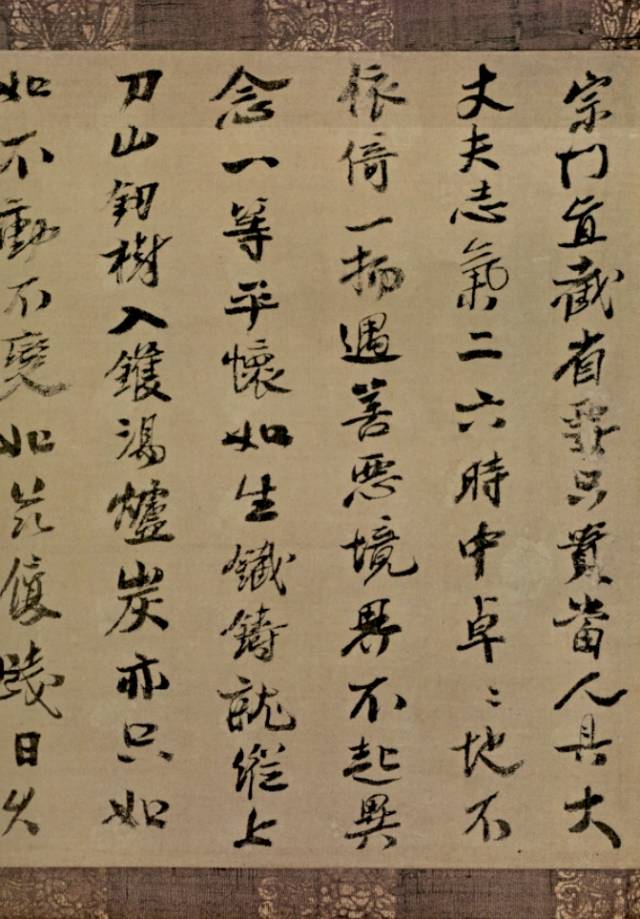 宗門直截省要只貴當人具大
丈夫志氣二六時中卓〻地不
依倚一物遇善惡境界不起異
念一等平懷如生鐵鑄就縱上
刀山釼樹入鑊湯爐炭亦只如
如不動不變如茲履踐日久